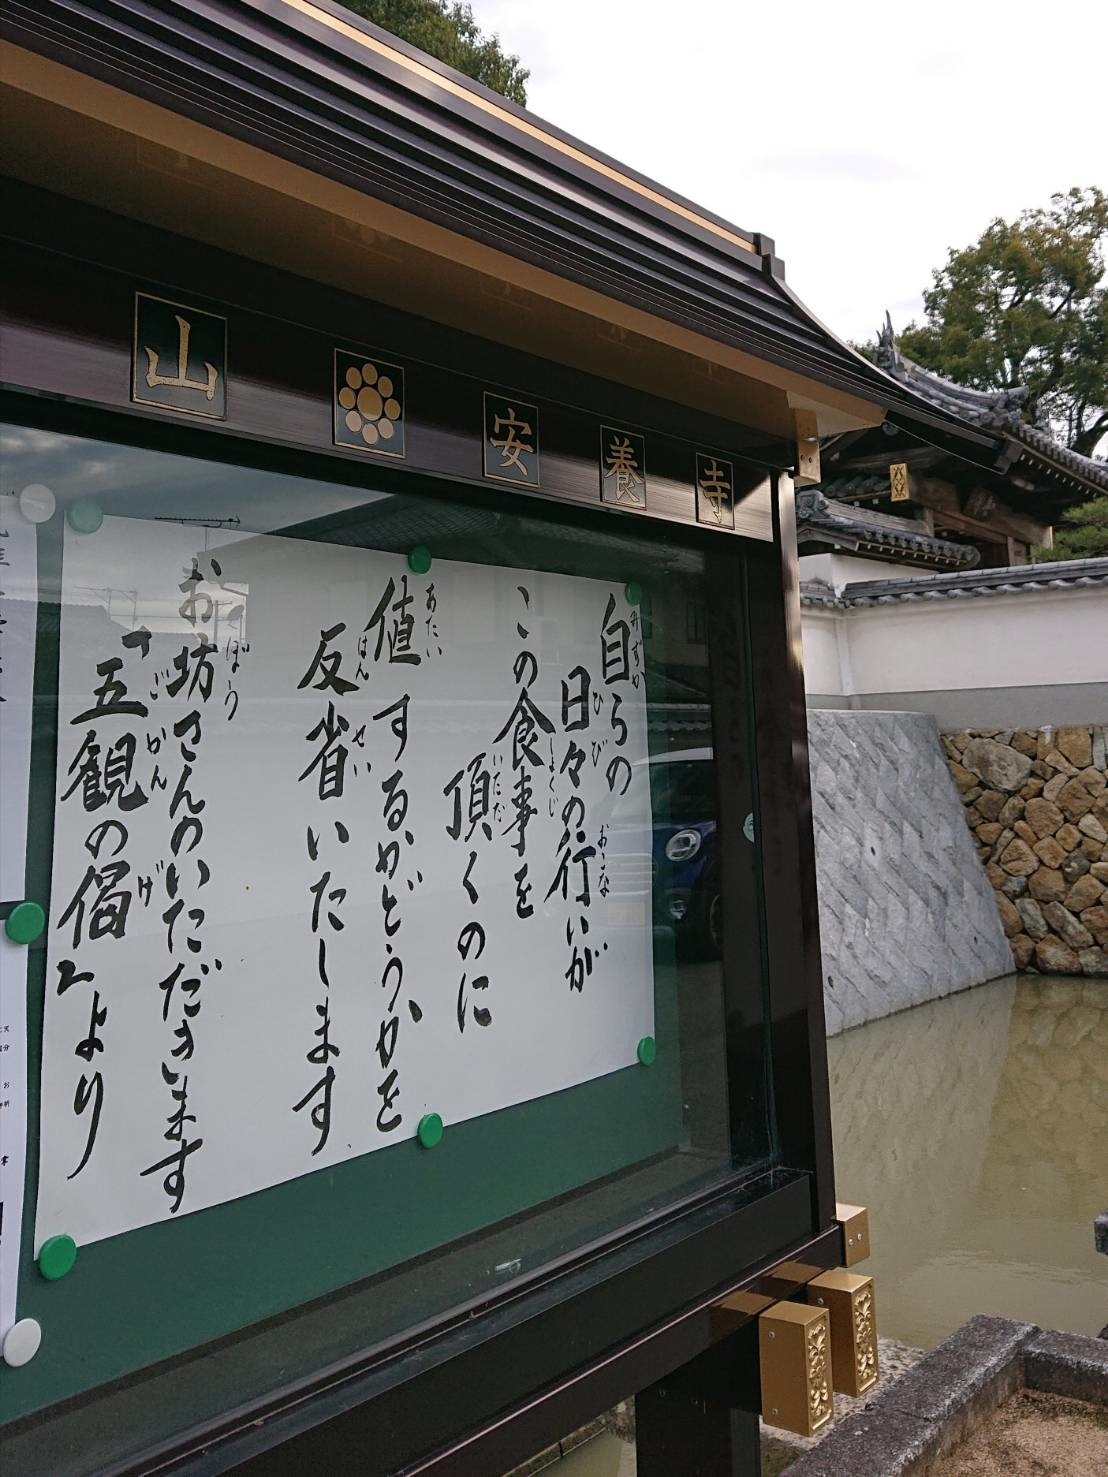 山 安養寺
自らの
日々の行いが
この食事を
頂くのに
値するかどうかを
反省いたします
お坊さんのいただきます
「五観の偈」より
みずか
ひび
おこな
しょくじ
いただ
あたい
はん せい
ぼう
ごかん
げ